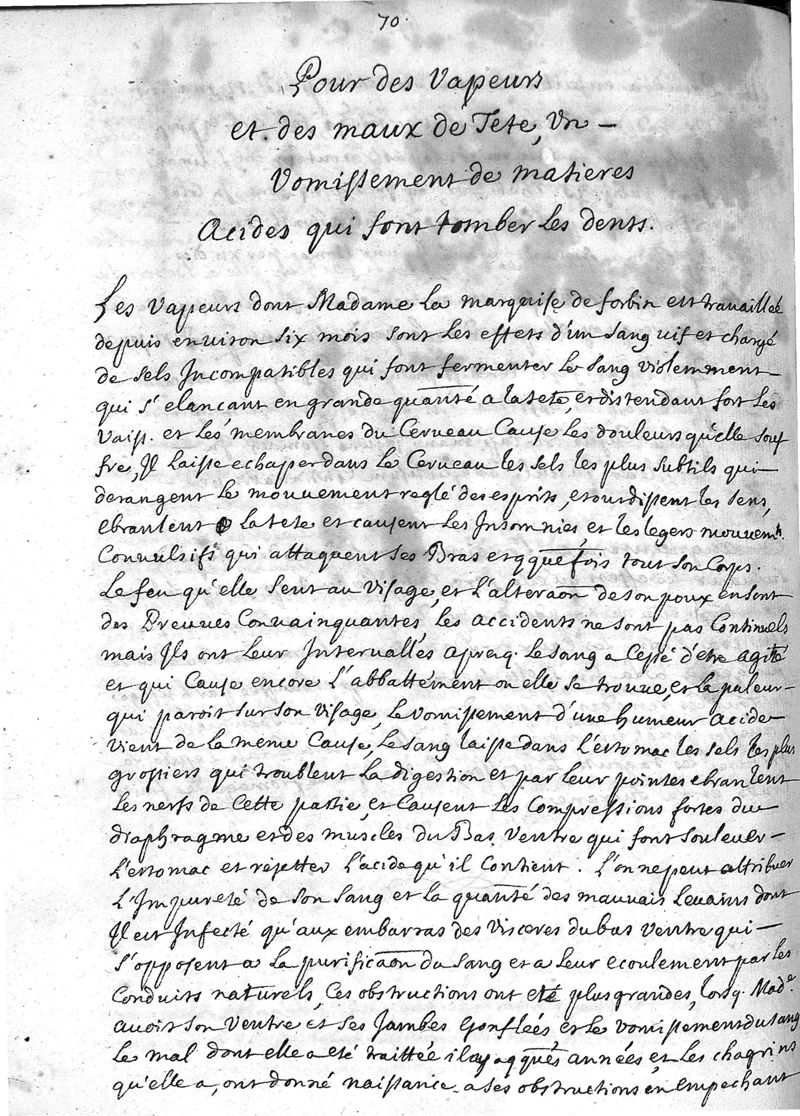 70.
Pour des Vapeurs
et des maux de Tete, Un –
Vomissement de matieres
Acides qui font tomber les dents.
Les Vapeurs dont Madame la marquise de forbin est travaillée
depuis environ six mois sont les effets d'un sang vif et chargé
de sels Incompatibles qui font fermenter le sang violemment –
qui s'elancant en grande quantité a la tete, et distendant fort les
Vaiss. et les membranes du Cerveau Cause les douleurs qu'elle souf
fre, Il laisse echaper dans le Cerveau les sels les plus subtils qui –
derangent le mouvement reglé des esprits, etourdissent les sens,
ebranlent la tete et causent les Insomnies, et les legers mouvem.ts
Convulsifs qui attaquent ses Bras et qque fois tout son Corps.
Le feu qu'elle sent au Visage, et l'alteraon de son poux en sont
des Preuves Convainquantes, les accidents ne sont pas Continuels
mais Ils ont leur Intervalles aprezq. le sang a Cessé d'etre agité
et qui Cause encore l'abbattement ou elle se trouve, et la paleur –
qui paroit sur son Visage, le vomissement d'une humeur acide
vient de la meme Cause, le sang laisse dans l'estomac les sels les plus
grossiers qui troublent la digestion et par leur pointes ebranlent
les nerfs de Cette partie, et Causent les Compressions fortes du
diaphragme et des muscles du Bas Ventre qui font soulever –
l'estomac et rejetter l'acide qu'il Contient. l'on ne peut attribuer
l'Impureté de son sang et la quantité des mauvais levains dont
Il est Infecté qu'aux embarras des Visceres du bas Ventre qui –
s'opposent a la purificaon du sang et a leur ecoulement par les
Conduits naturels, Ces obstructions ont eté plus grandes, lorsq. Mad.e
avoit son Ventre et ses Jambes Gonflées et le vomissement du sang
le mal dont elle a eté traittée il y a qqués années, et les chagrins
qu'elle a, ont donné naissance a ses obstructions en empechant